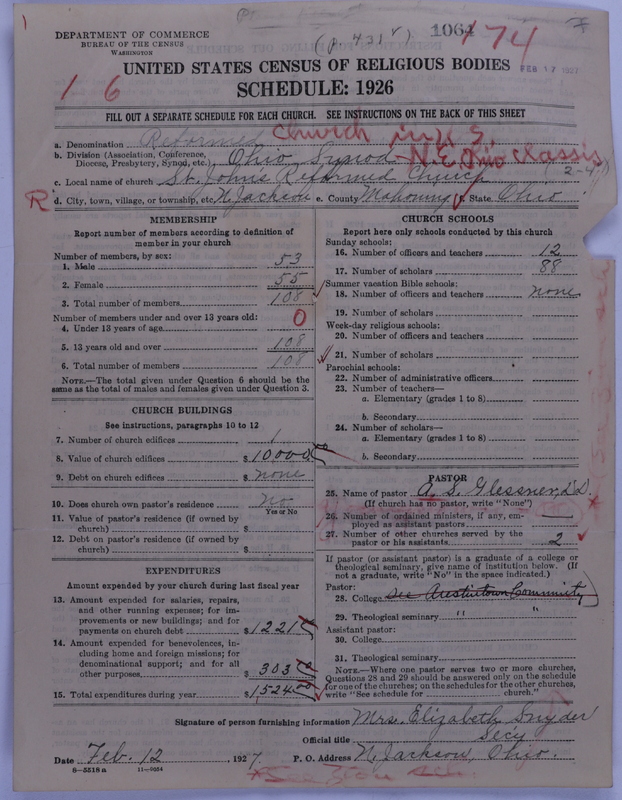 1
DEPARTMENT OF COMMERCE
BUREAU OF THE CENSUS
WASHINGTON
(p. 431r)
1064
174
FEB 17 1927
UNITED STATES CENSUS OF RELIGIOUS BODIES
1 6
SCHEDULE: 1926
FILL OUT A SEPARATE SCHEDULE FOR EACH CHURCH. SEE INSTRUCTIONS ON THE BACK OF THIS SHEET
a. Denomination Reformed Church in U.S.
b. Division (Association, Conference, Diocese, Presbytery, Synod, etc.) Ohio Synod - N.E. Ohio Classis
c. Local name of church St. John's Reformed Church (2-4)
R d. City, town, village, or township, etc. N. Jackson e. County Mahoning f. State Ohio
MEMBERSHIP
Report number of members according to definition of member in your church
Number of members, by sex:
1. Male 53
2. Female 55
3. Total number of members 108
Number of members under and over 13 years old:
4. Under 13 years of age 0
5. 13 years old and over 108
6. Total number of members 108
NOTE.—The total given under Question 6 should be the same as the total of males and females given under Question 3.
CHURCH BUILDINGS
See instructions, paragraphs 10 to 12
7. Number of church edifices 1
8. Value of church edifices $ 10000
9. Debt on church edifices $ none
10. Does church own pastor's residence No
Yes or No
11. Value of pastor's residence (if owned by church) $
12. Debt on pastor's residence (if owned by church) $
EXPENDITURES
Amount expended by your church during last fiscal year
13. Amount expended for salaries, repairs, and other running expenses; for improvements or new buildings; and for payments on church debt $ 1221
14. Amount expended for benevolences, including home and foreign missions; for denominational support; and for all other purposes $ 303
15. Total expenditures during year $ 1524
CHURCH SCHOOLS
Report here only schools conducted by this church
Sunday schools:
16. Number of officers and teachers 12
17. Number of scholars 88
Summer vacation Bible schools:
18. Number of officers and teachers none
19. Number of scholars
Week-day religious schools:
20. Number of officers and teachers
21. Number of scholars
Parochial schools:
22. Number of administrative officers
23. Number of teachers—
a. Elementary (grades 1 to 8)
b. Secondary
24. Number of scholars—
a. Elementary (grades 1 to 8)
b. Secondary
PASTOR
25. Name of pastor A. S. Glessner, D.D.
(If church has no pastor, write "None")
26. Number of ordained ministers, if any, employed as assistant pastors
27. Number of other churches served by the pastor or his assistants 2
If pastor (or assistant pastor) is a graduate of a college or theological seminary, give name of institution below. (If not a graduate, write "No" in the space indicated.)
Pastor:
28. College see Austintown Community
29. Theological seminary " "
Assistant pastor:
30. College
31. Theological seminary
NOTE.—Where one pastor serves two or more churches, Questions 28 and 29 should be answered only on the schedule for one of the churches; on the schedules for the other churches, write "See schedule for church."
Signature of person furnishing information Mrs. Elizabeth Snyder
Official title Secy
Date Feb. 12, 1927. P. O. Address N. Jackson, Ohio.
8-5518a 11-9054